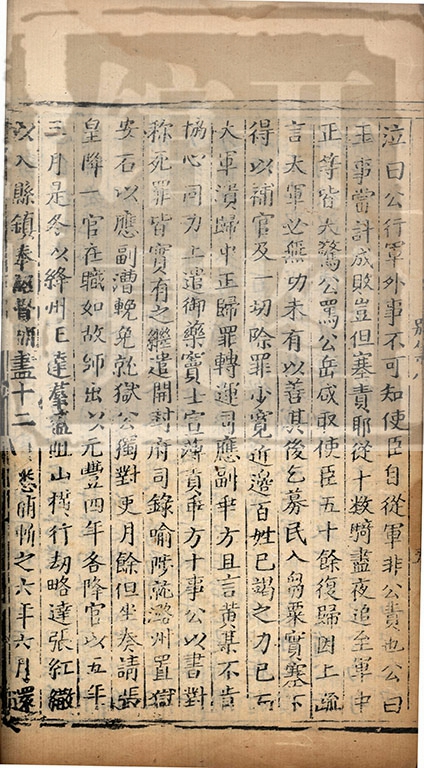 泣曰公行軍外事不可知使臣自從軍非公責也公曰
王事當計成敗豈但塞責耶從十數騎晝夜追至軍中
正等皆大驚公罵公岳咸取使臣五十餘復歸因上疏
言大軍必無功未有以善其後乞募民入芻粟實塞下
得以補官及一切除罪少寬近邊百姓已竭之力已而
大軍潰歸中正歸罪轉運司應副乖方且言黃某不肯
協心同力上遣御藥竇士宣薄責乖方十事公以書對
称死罪皆實有之繼遣開封府司錄喻陟就潞州置獄
安石以應副漕輓免就獄公獨對吏月餘但坐奏請張
皇降一官在職如故師出以元豐四年各降官以五年
三月是冬以絳州王達羣盜阻山橫行劫略達張紅繖
以入縣鎮奉詔督捕盡十二 悉捕斬之六年六月還